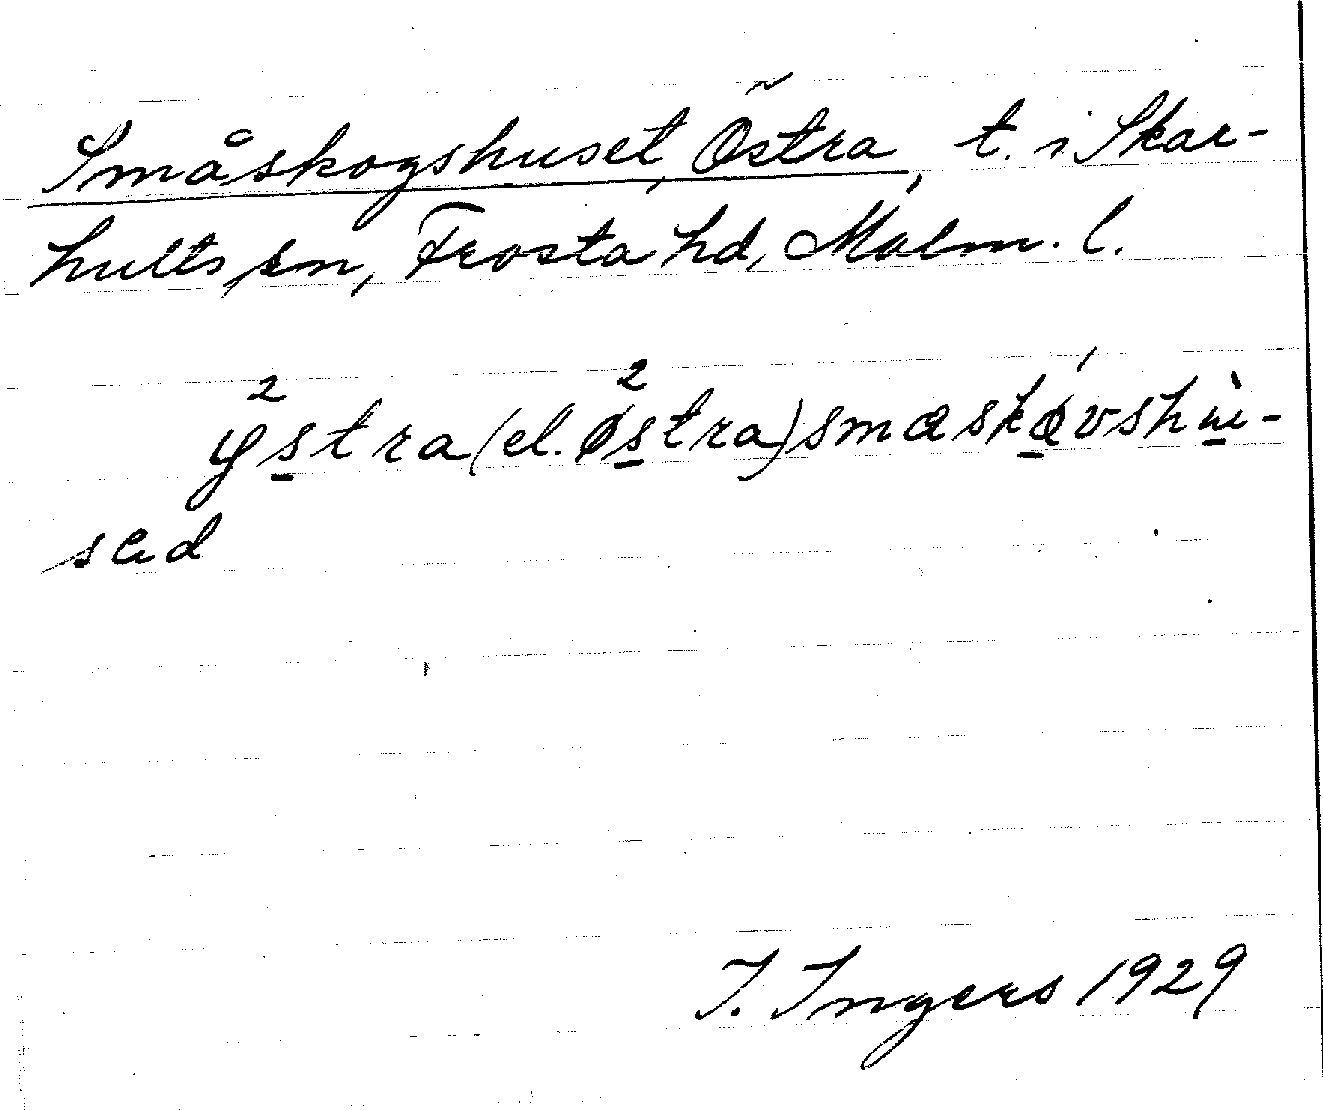 Småskogshuset, Östra, t. i Skar-
hults sn, Frosta hd, Malm. l.
y²stra (el. ø²stra) smaskǻvshùi-
sed
I. Ingers 1929